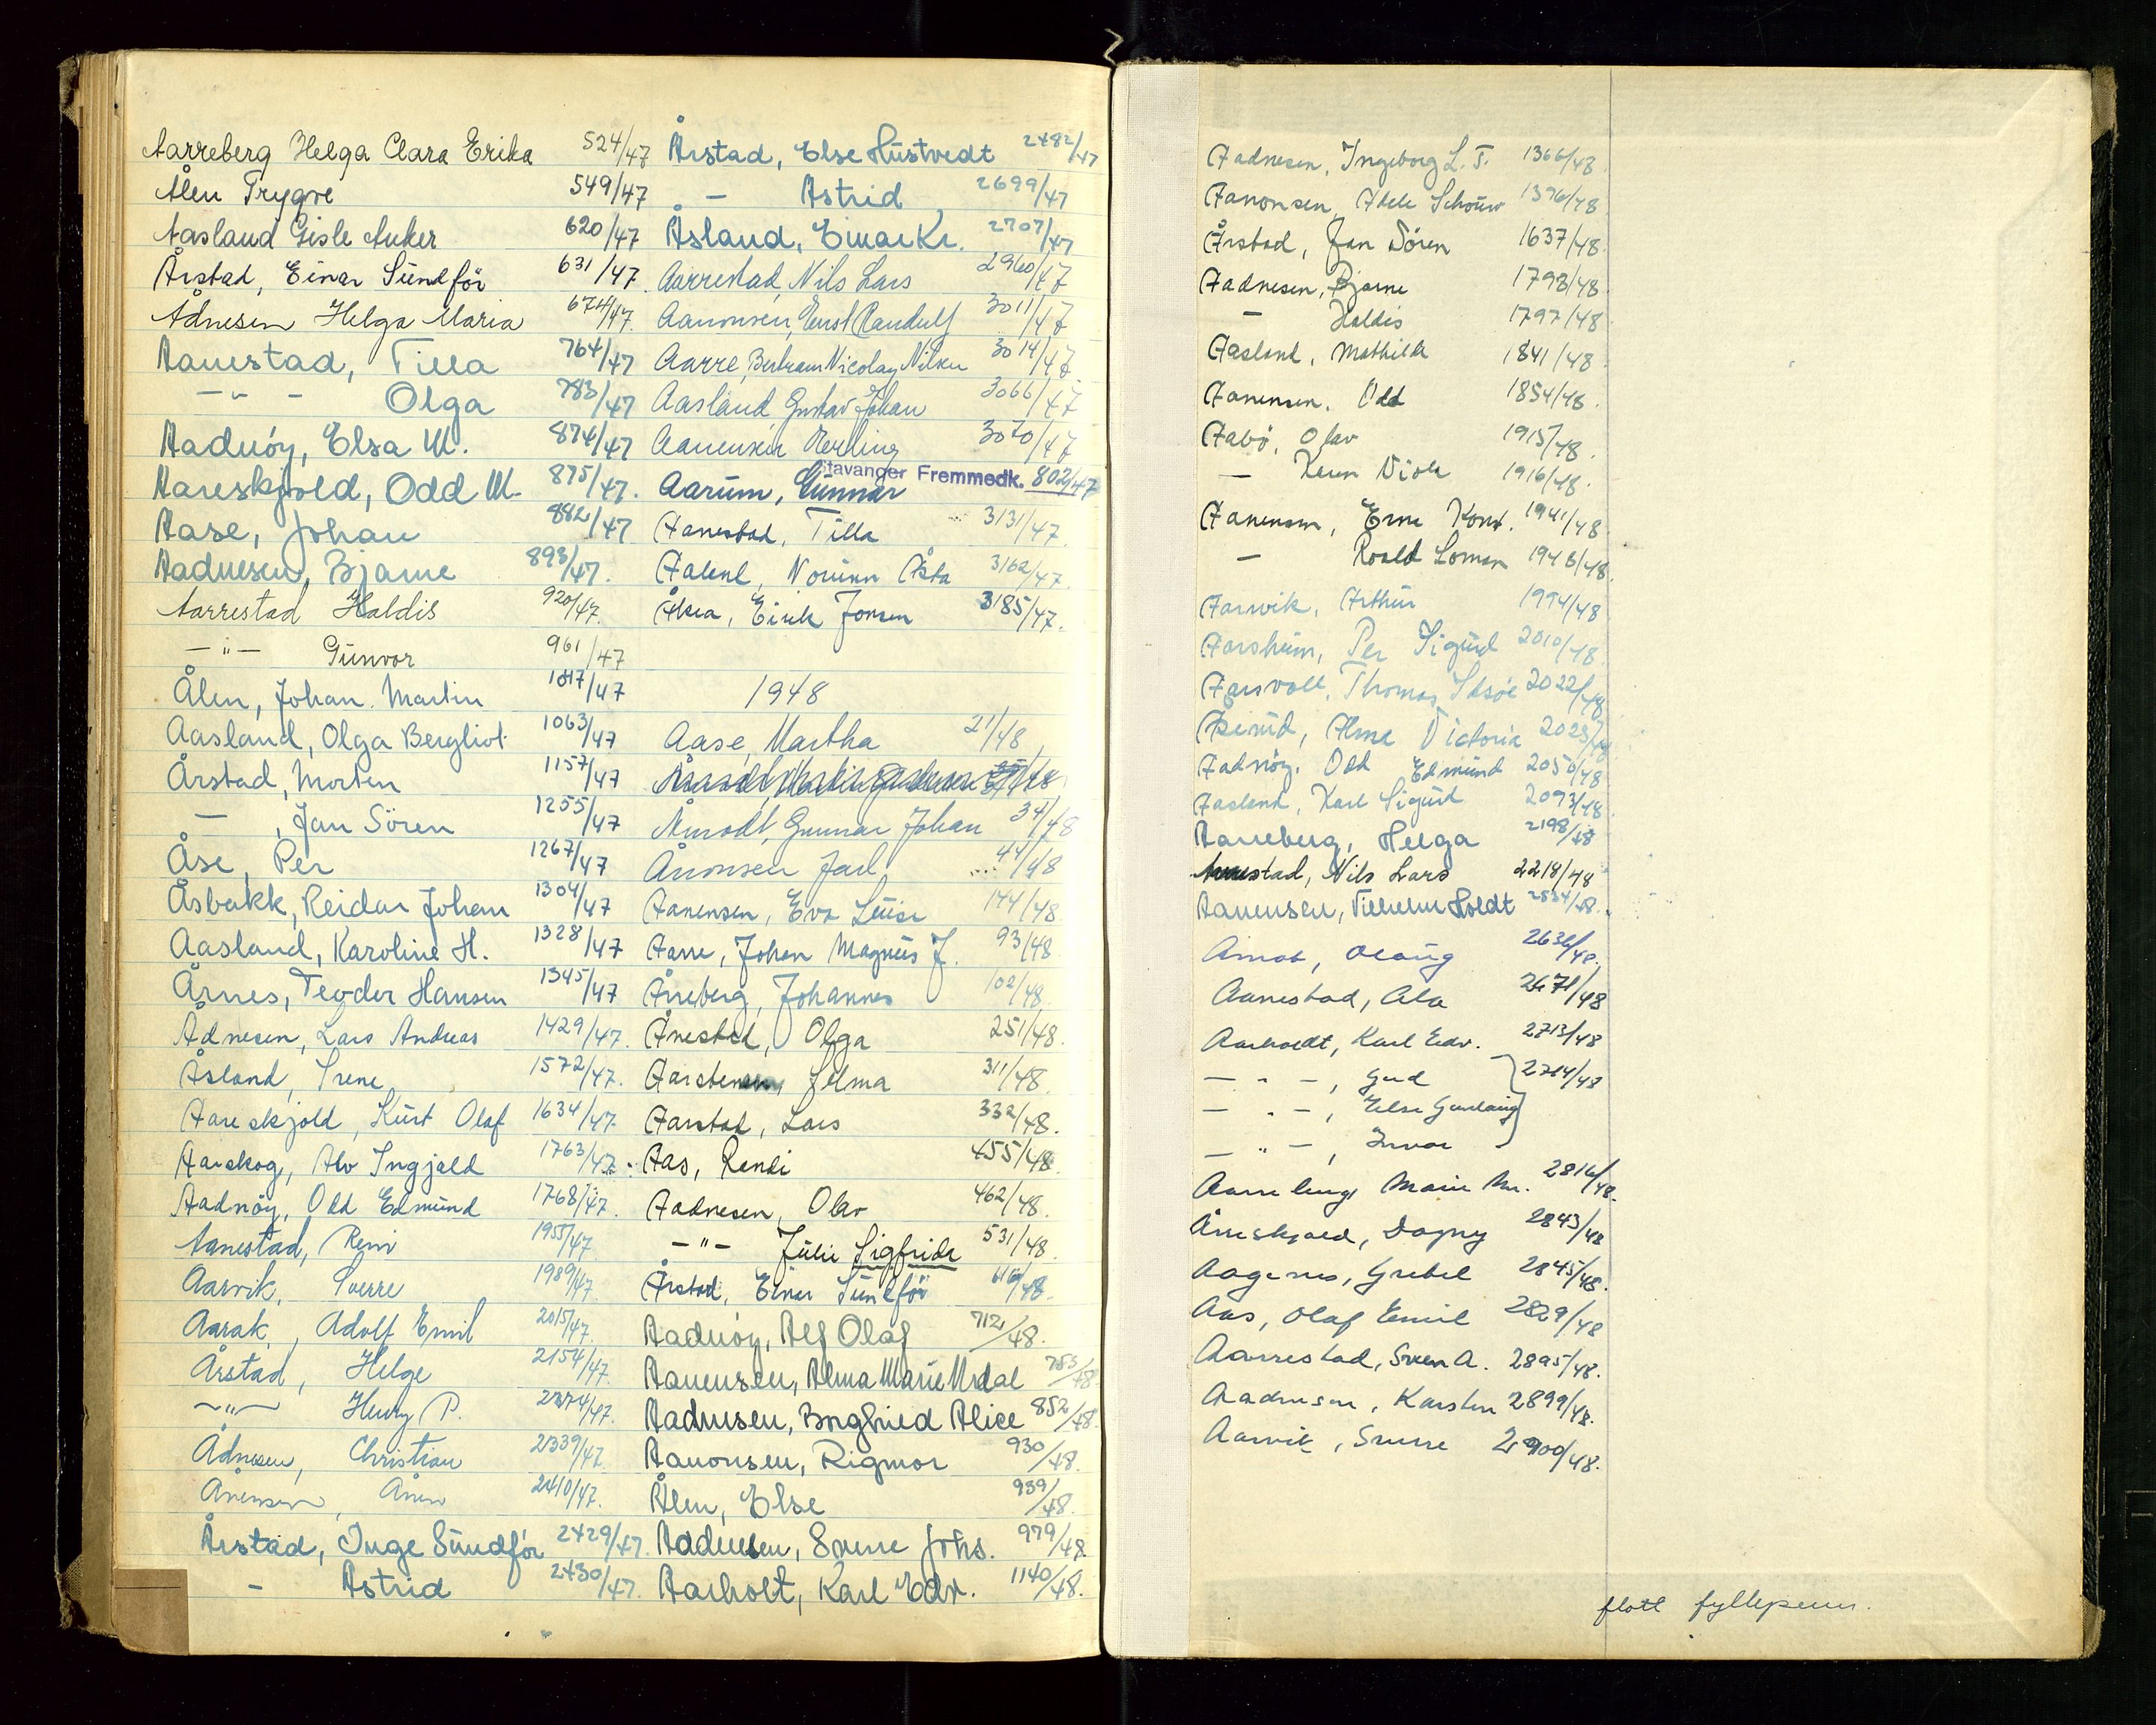 Aarreberg Helga Clara Erika 524/47
Ålen Trygve 549/47
Aasland Gisle Anker 620/47
Årstad, Einar Sundför 631/47
Ådnesen Helga Maria 674/47
Aanestad, Tilla 764/47
- " - Olga 783/47
Aadnöy, Elsa M. 874/47
Aareskjold, Odd M. 875/47.
Aase, Johan 882/47
Aadnesen, Bjarne 893/47.
Aarrestad Haldis 920/47.
- " - Gunvor 961/47
Ålen, Johan Martin 1017/47
Aasland, Olga Bergliot 1063/47
Årstad, Morten 1157/47
- , Jan Sören 1255/47
Åse, Per 1267/47
Åsbakk, Reidar Johan 1304/47
Aasland, Karoline H. 1328/47
Årnes, Teodor Hansen 1345/47
Ådnesen, Lars Andreas 1429/47.
Åsland, Irene 1572/47.
Aareskjold, Kurt Olaf 1634/47.
Aarskog, Alv Ingjald 1763/47.
Aadnöy, Odd Edmund 1768/47.
Aanestad, Reni 1955/47
Aarvik, Sverre 1989/47.
Aarak, Adolf Emil 2015/47.
Årstad, Helge 2154/47.
- " - Henry P.
Ådnesen, Christian 2339/47.
Ånensen, Ånen 2410/47.
Årstad, Inge Sundför 2429/47.
- Astrid 2430/47.
Årstad, Else Hustvedt 2482/47
- Astrid 2699/47
Åsland, Einar Kr. 2707/47
Aarrestad, Nils Lars 2960/47
Aanonsen, Ernst Randulf 3011/47
Aarre, Bertram Nicolay Nilsen 3014/47
Aasland, Gustav Johan 3066/47
Aanensen Herling 3070/47
Stavanger Fremmedk. 802/47
Aarum, Gunnar
Aanestad, Tilla 3131/47.
Aalend, Norunn Åsta 3162/47.
Eirik Jonsen 3185/47.
1948
Aase, Martha 21/48
Åmodt, Gunnar Johan 34/48
Ånonsen Jarl 44/48
Aanensen, Eva Luise 144/48
Aarre, Johan Magnus J. 93/48
Årreberg, Johannes 102/48
Ånestad, Olga 251/48.
Aarstensen, Jelma 311/48
Aarstad, Lars 332/48.
Aas, Randi 455/48
Aadnesen, Olav 462/48.
- " - Julie Sigfrida 531/48.
Årstad, Einar Sundför 616/48
Aadnöy, Alf Olaf 712/48.
Aanensen, Alma Marie Urdal 783/48
Aadnesen, Borghied Alice 852/48.
Aanonsen, Rigmor 930/48.
Ålen, Else 939/48.
Aadnesen, Sverre Johs. 979/48
Aarholt, Karl Edv. 1140/48.
Aadnesen, Ingeborg L. T. 1366/48
Aanonsen, Adele Schouw 1396/48
Årstad, Jan Sören 1637/48.
Aadnesen, Bjarne 1798/48
- Haldis 1797/48
Aasland, Mathilde 1841/48
Aanensen, Odd 1854/48.
Aabö, Olav 1915/48.
- Karen Viola 1916/48.
Aanensen, Erna Konst. 1941/48
- Roald Loman 1946/48.
Aarvik, Arthur 1994/48
Aarsheim, Per Sigurd 2010/48
Aarsvoll, Thomas Idsöe 2022/48
Alma Victoria
Aadnöy, Odd Edmund 2050/48
Aasland, Karl Sigurd 2093/48
Aarreberg, Helga 2198/48
Aarrestad, Nils Lars 2218/48
Aanensen, Vilhelm Holdt 2534/48.
Åmot, Olaug 2636/48.
Aanestad, Ala 2671/48
Aarholdt, Karl Edv. 2713/48
- " - , Gud 2714/48
- " - , Else Gunlaug
- " - , Invar
Marie M. 2816/48.
Åreskjold, Dagny 2843/48
Aagenes, Gretel 2845/48.
Aas, Olaf Emil 2829/48
Aarrestad, Svein A. 2895/48.
Aadnesen, Karsten 2899/48.
Aarvik, Sverre 2900/48.
flott fyllepenn.